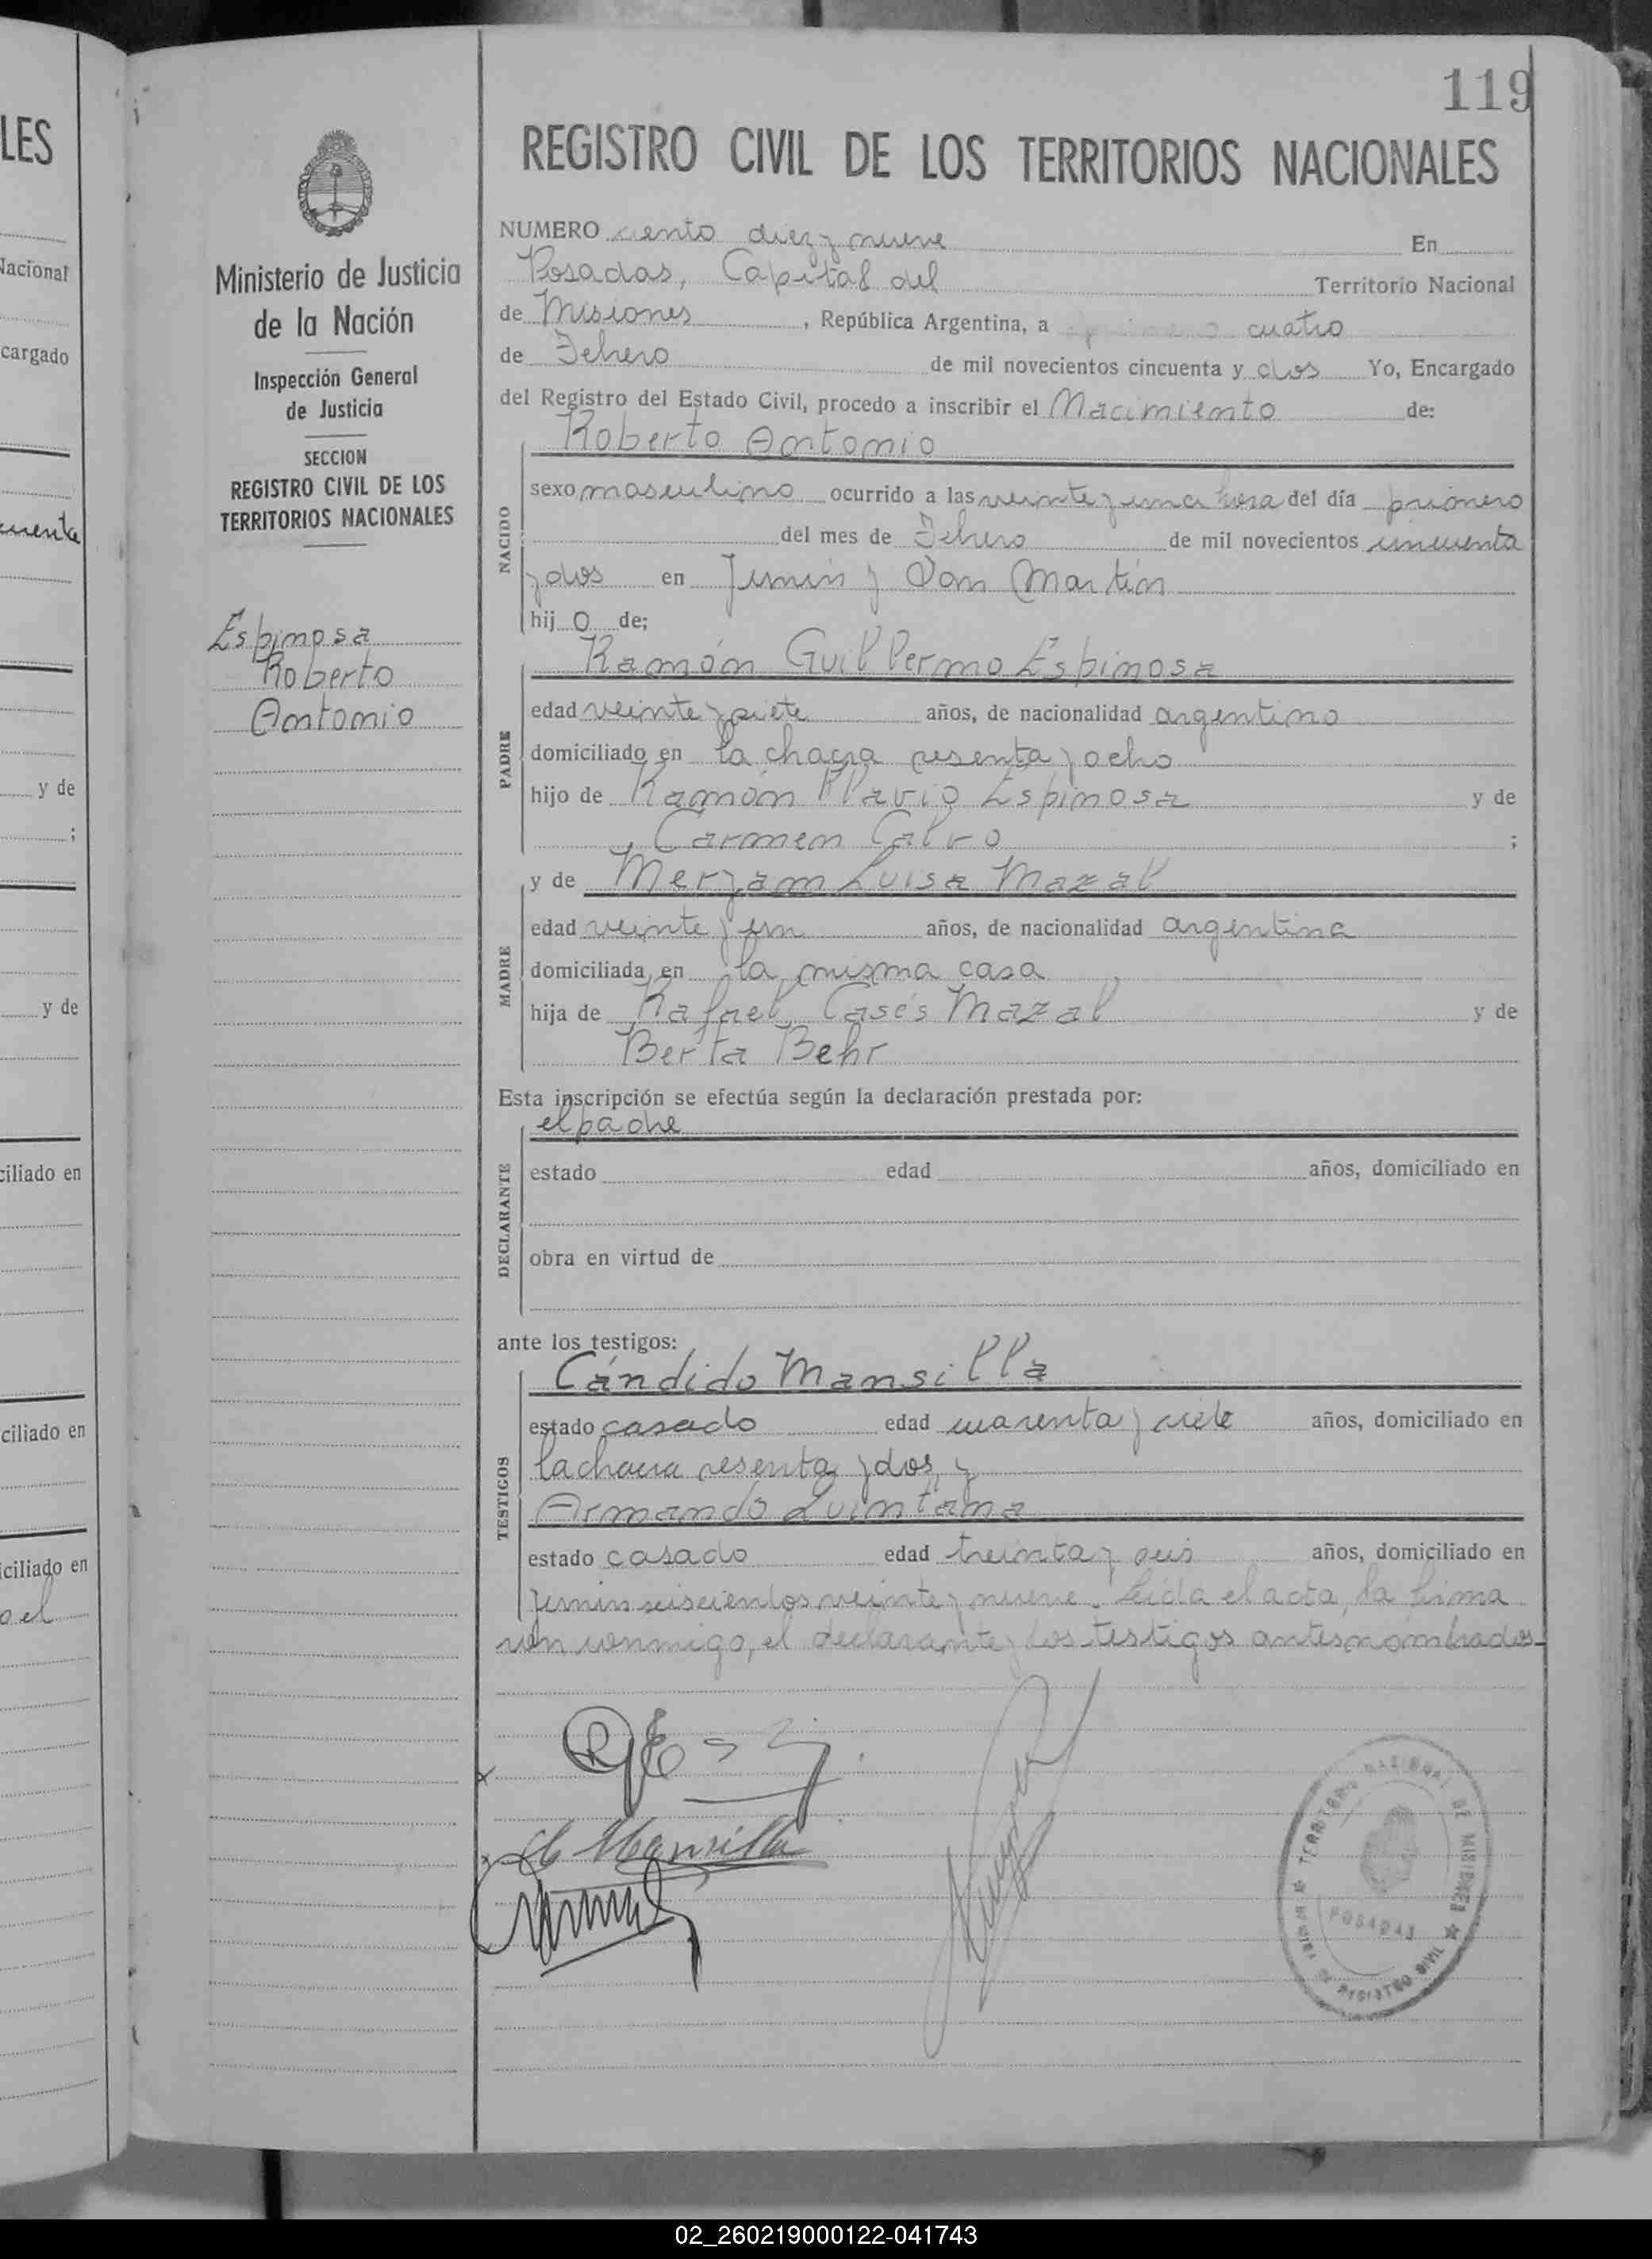 119
LES
REGISTRO CIVIL DE LOS TERRITORIOS NACIONALES
Ministerio de Justicia
de la Nación
Inspección General
de Justicia
SECCION
REGISTRO CIVIL DE LOS
TERRITORIOS NACIONALES
Espinosa
Roberto
Antonio
Nacional
cargado
y de
;
y de
ciliado en
ciliado en
iciliado en
o el
NUMERO ciento diez y nueve En
Posadas, Capital del Territorio Nacional
de Misiones, República Argentina, a cuatro
de Febrero de mil novecientos cincuenta y dos Yo, Encargado
del Registro del Estado Civil, procedo a inscribir el Nacimiento de:
Roberto Antonio
NACIDO
sexo masculino ocurrido a las veinte y una hora del día primero
del mes de Febrero de mil novecientos cincuenta
y dos en Junin y San Martín
hij o de;
Ramón Guillermo Espinosa
PADRE
edad veinte y siete años, de nacionalidad argentino
domiciliado en la chacra sesenta y ocho
hijo de Ramón Flavio Espinosa y de
Carmen Calvo ;
y de Meryam Luisa Mazal
MADRE
edad veinte y un años, de nacionalidad argentina
domiciliada en la misma casa
hija de Rafael Casés Mazal y de
Berta Behr
Esta inscripción se efectúa según la declaración prestada por:
el padre
DECLARANTE
estado edad años, domiciliado en
obra en virtud de
ante los testigos:
Cándido Mansilla
TESTIGOS
estado casado edad cuarenta y siete años, domiciliado en
la chacra sesenta y dos, y
Armando Quintana
estado casado edad treinta y seis años, domiciliado en
Junin seiscientos veinte y nueve. Leida el acta, la firma
ron conmigo, el declarante y los testigos antes nombrados
C Mansilla
TERRITORIO NACIONAL DE MISIONES
POSADAS
REGISTRO CIVIL
02_260219000122-041743